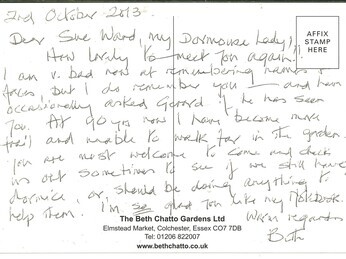 2nd October 2013.
AFFIX
STAMP
HERE
Dear Sue Ward, my Dormouse Lady!
How lovely to meet you again.
I am v. bad now at remembering names &
faces but I do remember you — and have
occasionally asked Gerard if he has seen
you. At 90 yrs now I have become more
frail and unable to walk far in the garden.
You are most welcome to come and check
us out sometimes to see if we still have
dormice, or, should be doing anything to
help them. I'm so glad you like my
Warm regards
Beth
The Beth Chatto Gardens Ltd
Elmstead Market, Colchester, Essex CO7 7DB
Tel: 01206 822007
www.bethchatto.co.uk